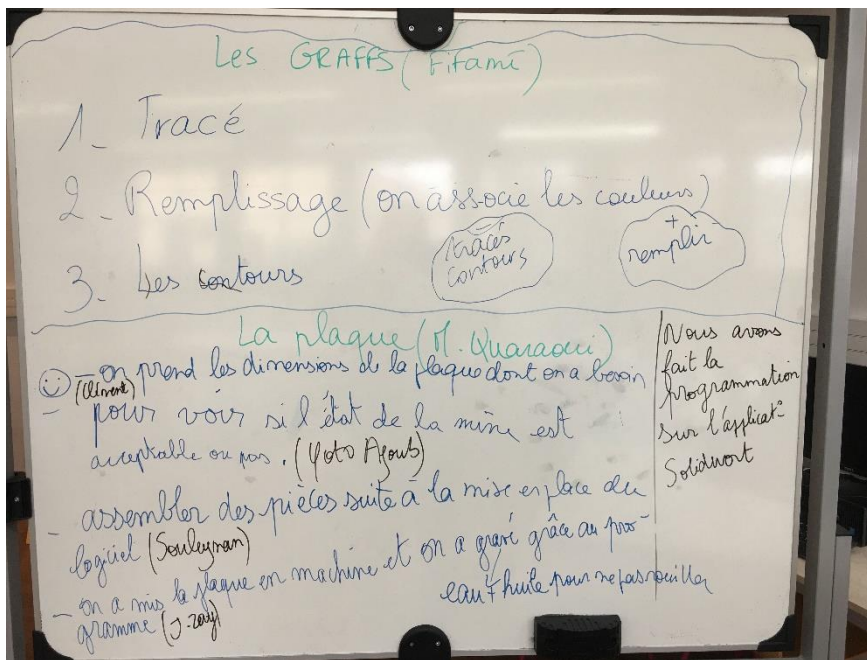 Les GRAFFS (Fifamè)
1_ Tracé
2_ Remplissage (on associe les couleurs)
3_ Les contours
-
tracés
contours
+
remplir
La plaque (M. Quaraoui)
- on prend les dimensions de la plaque dont on a besoin
(Clément)
- pour voir si l'état de la mine est
acceptable ou pas. (Photo Ayoub)
- assembler des pièces suite à la mise en place du
logiciel (Souleyman)
- on a mis la plaque en machine et on a gravé grâce au pro-
gramme
eau + huile pour ne pas rouiller
Nous avons
fait la
programmation
sur l'applicat°
Solidwort